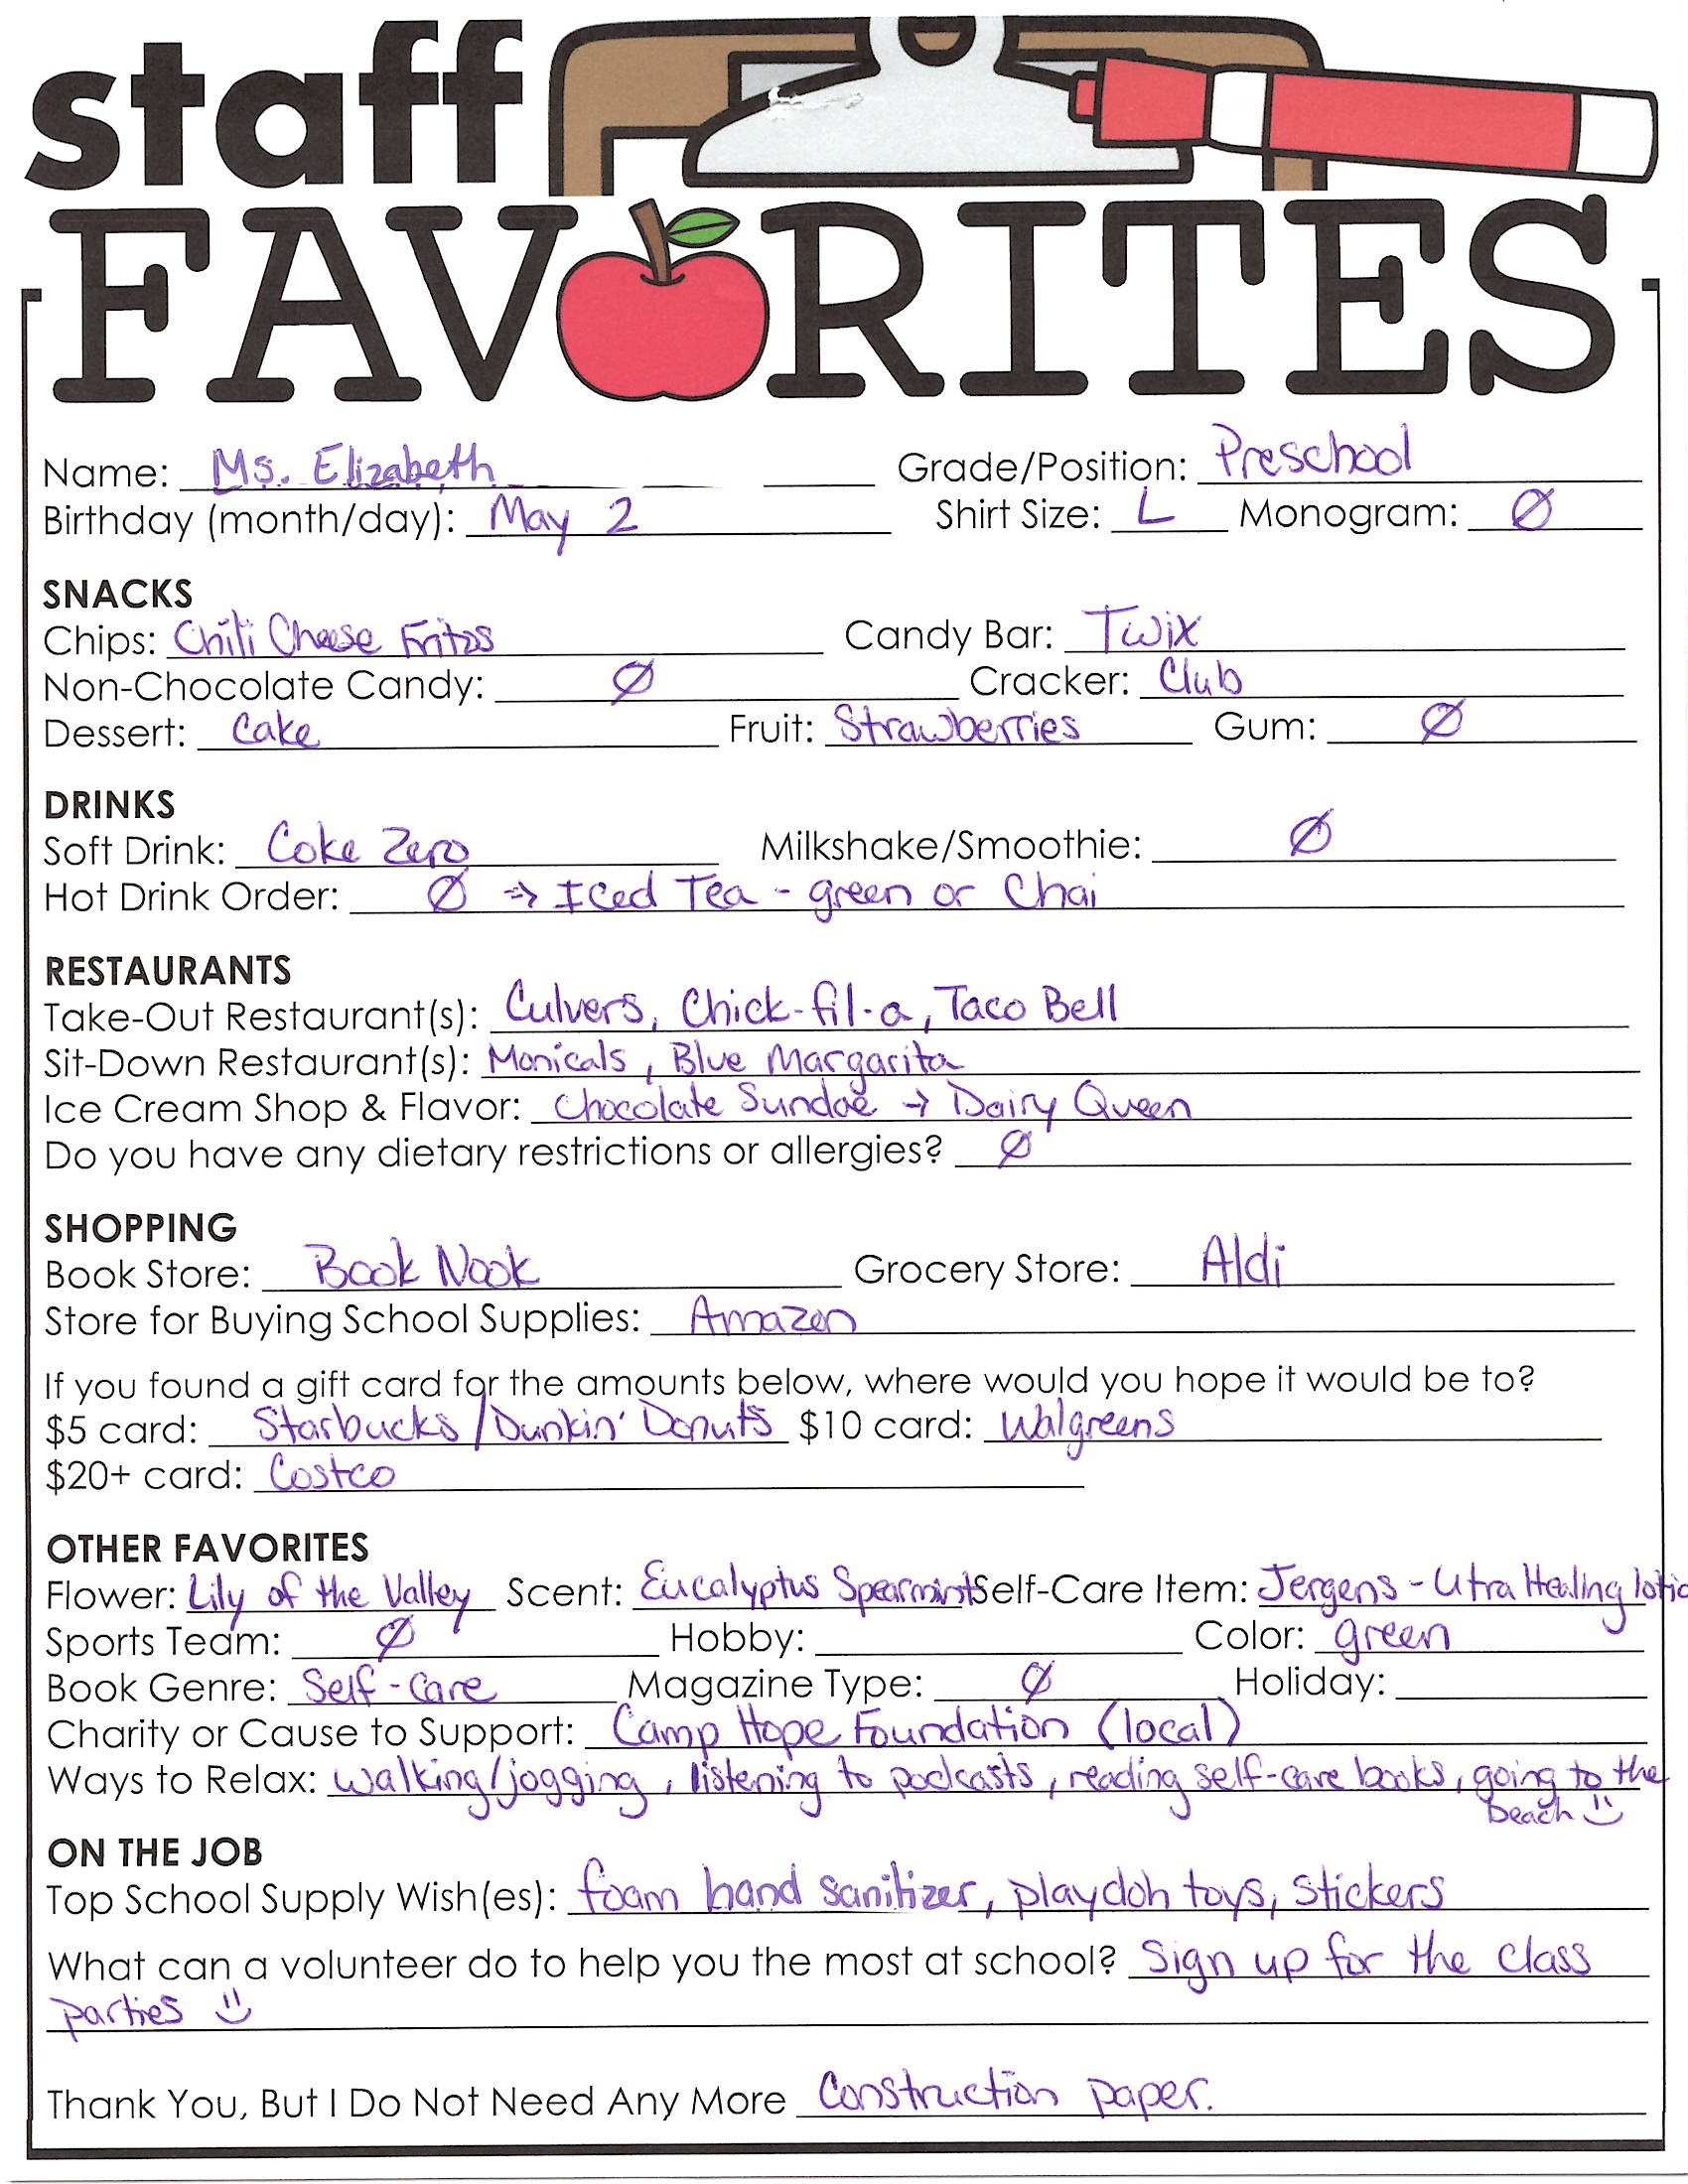 staff
FAVORITES
Name: Ms. Elizabeth Grade/Position: Preschool
Birthday (month/day): May 2 Shirt Size: L Monogram: Ø
SNACKS
Chips: Chili Cheese Fritos Candy Bar: Twix
Non-Chocolate Candy: Ø Cracker: Club
Dessert: Cake Fruit: Strawberries Gum: Ø
DRINKS
Soft Drink: Coke Zero Milkshake/Smoothie: Ø
Hot Drink Order: Ø => Iced Tea - green or Chai
RESTAURANTS
Take-Out Restaurant(s): Culvers, Chick-fil-a, Taco Bell
Sit-Down Restaurant(s): Monicals, Blue Margarita
Ice Cream Shop & Flavor: Chocolate Sundae → Dairy Queen
Do you have any dietary restrictions or allergies? Ø
SHOPPING
Book Store: Book Nook Grocery Store: Aldi
Store for Buying School Supplies: Amazon
If you found a gift card for the amounts below, where would you hope it would be to?
$5 card: Starbucks/Dunkin' Donuts $10 card: Walgreens
$20+ card: Costco
OTHER FAVORITES
Flower: Lily of the Valley Scent: Eucalyptus Spearmint Self-Care Item: Jergens - Utra Healing lotio
Sports Team: Ø Hobby: Color: green
Book Genre: Self-Care Magazine Type: Ø Holiday:
Charity or Cause to Support: Camp Hope Foundation (local)
Ways to Relax: walking/jogging, listening to podcasts, reading self-care books, going to the
beach
ON THE JOB
Top School Supply Wish(es): foam hand sanitizer, playdoh toys, stickers
What can a volunteer do to help you the most at school? Sign up for the class
parties
Thank You, But I Do Not Need Any More Construction paper.